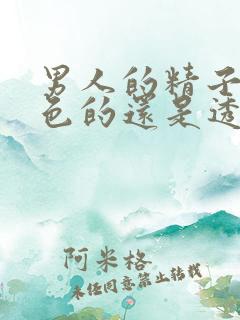 男人的精子
色的還是透
阿米格
未经同意禁止转载